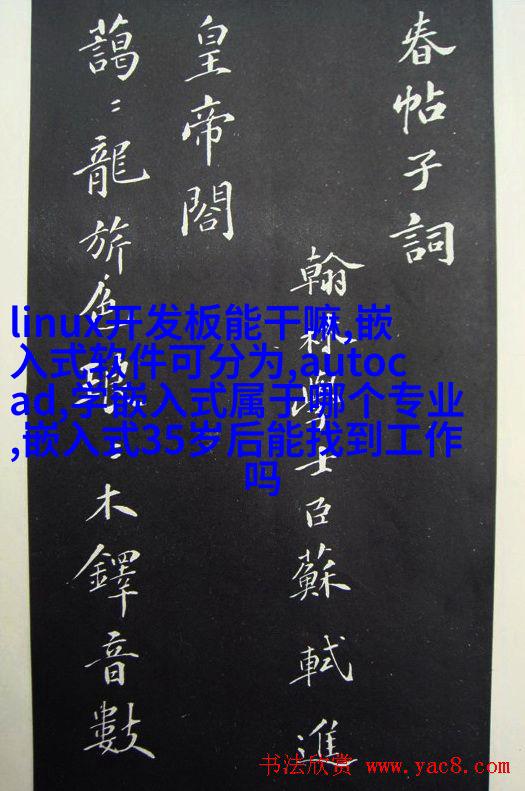 春帖子詞
翰林學士臣蘇軾進
皇帝閣
藹〻龍旂色〻木鐸音數
linux开发板能干嘛,嵌
入式软件可分为,autoc
ad,学嵌入式属于哪个专业
,嵌入式35岁后能找到工作
吗
书法欣赏 www.yac8.com